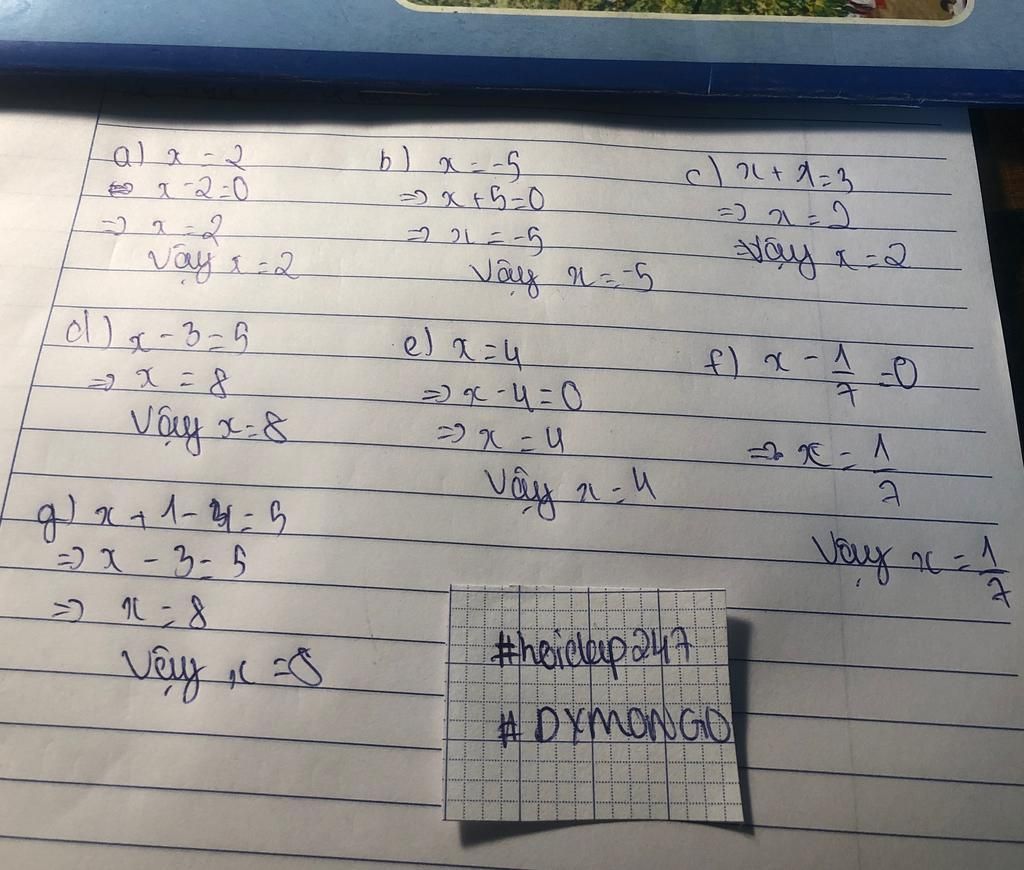 a) x = 2
⇔ x - 2 = 0
⇒ x = 2
Vậy x = 2
b) x = -5
⇒ x + 5 = 0
⇒ x = -5
Vậy x = -5
c) x + 1 = 3
⇒ x = 2
⇒ Vậy x = 2
d) x - 3 = 5
⇒ x = 8
Vậy x = 8
e) x = 4
⇒ x - 4 = 0
⇒ x = 4
Vậy x = 4
f) x - 1/7 = 0
⇒ x = 1/7
Vậy x = 1/7
g) x + 1 - 4 = 5
⇒ x - 3 = 5
⇒ x = 8
Vậy x = 8
#hoidap247
# DXMONGO